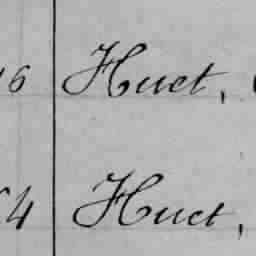 16 Huet,
4 Huet,